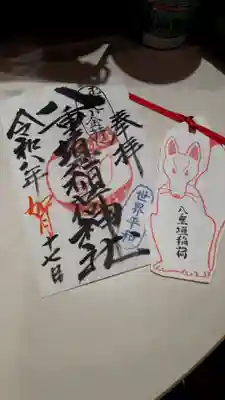 奉拝
八重垣稲荷神社
令和八年 如月 十七日
世界平和
八重垣稲荷